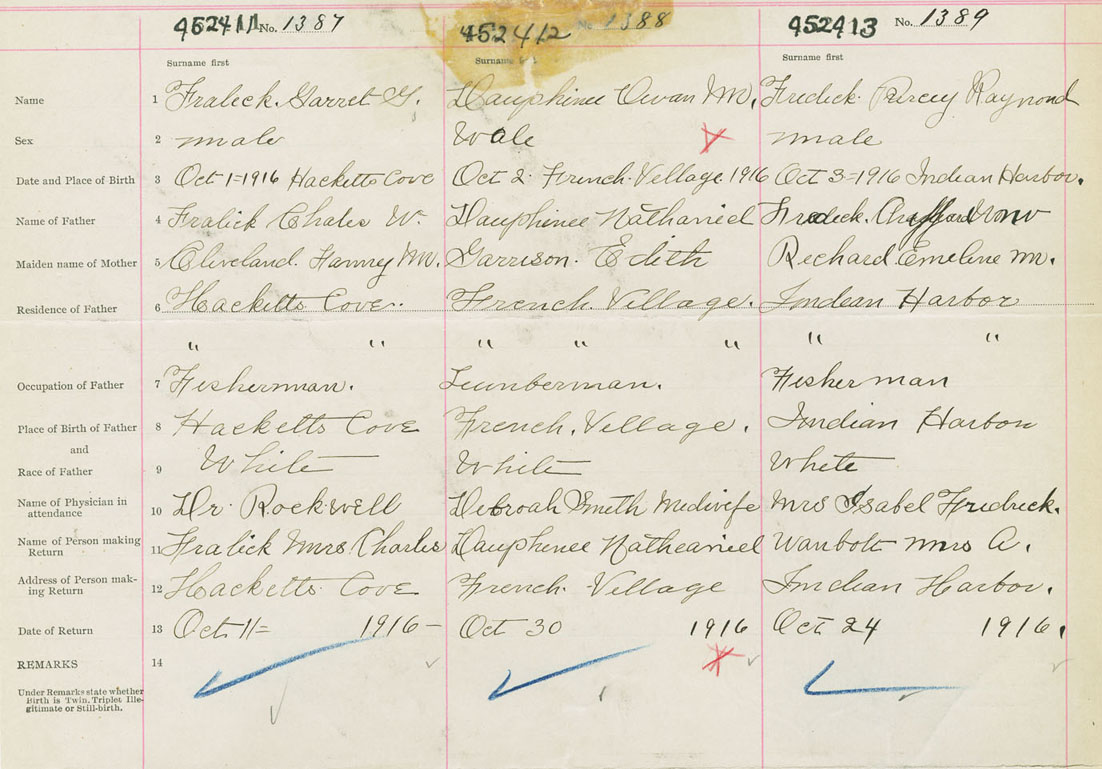 452411 No. 1387 452412 No. 1388 452413 No. 1389
Surname first Surname first Surname first
Name 1 Fralick Garret G. Dauphinee Owan M. Fredick Percey Raynond
Sex 2 male Wale male
Date and Place of Birth 3 Oct 1=1916 Hacketts Cove Oct 2 French Village 1916 Oct 3=1916 Indian Harbor.
Name of Father 4 Fralick Chales W Dauphinee Nathaniel Fredick.
Maiden name of Mother 5 Cleveland. Fanney M. Garrison. Edith Richard Emeline M.
Residence of Father 6 Hacketts Cove. French. Village. Indian Harbor
" " " " " " "
Occupation of Father 7 Fisherman. Lumberman. Fisherman
Place of Birth of Father 8 Hacketts Cove French. Village. Indian Harbor
and
Race of Father 9 White White White
Name of Physician in
attendance 10 Dr. Rockwell Debroah Smith Medivife Mrs Isabel Fredrick.
Name of Person making
Return 11 Fralick Mrs Charles Dauphenee Natheaniel Wanbolt Mrs A.
Address of Person mak-
ing Return 12 Hacketts Cove French. Village Indian Harbor.
Date of Return 13 Oct. 11= 1916- Oct 30 1916 Oct 24 1916.
REMARKS 14
Under Remarks state whether
Birth is Twin, Triplet Ille-
gitimate or Still-birth.